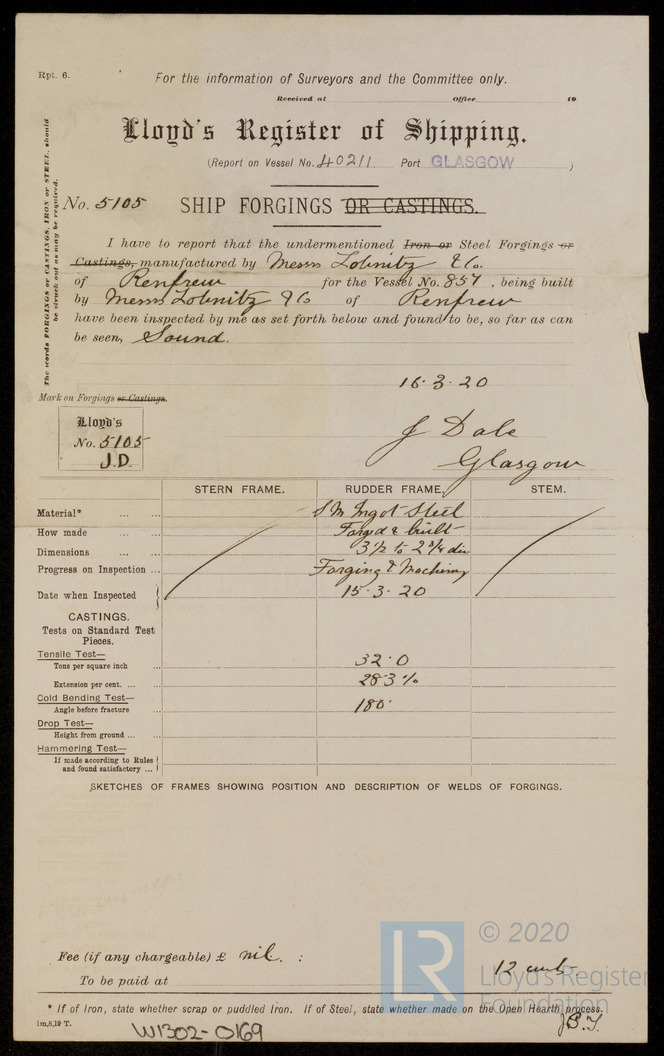 Rpt. 6.
For the information of Surveyors and the Committee only.
Received at Office 19
Lloyd's Register of Shipping.
(Report on Vessel No. 40211 Port GLASGOW )
The words FORGINGS or CASTINGS, IRON or STEEL, should
be struck out as may be required.
No. 5105 SHIP FORGINGS OR CASTINGS.
I have to report that the undermentioned Iron or Steel Forgings or
Castings, manufactured by Messrs Lobnitz & Co.
of Renfrew for the Vessel No. 857 , being built
by Messrs Lobnitz & Co of Renfrew
have been inspected by me as set forth below and found to be, so far as can
be seen, Sound.
16.3.20
Mark on Forgings or Castings.
Lloyd's
No. 5105
J.D.
J Dale
Glasgow
STERN FRAME. RUDDER FRAME. STEM.
Material* ... ... S M Ingot Steel
How made ... ... Forged & built
Dimensions ... ... 3 1/2 to 2 3/4 dia
Progress on Inspection ... Forging & Machining
Date when Inspected 15.3.20
CASTINGS.
Tests on Standard Test
Pieces.
Tensile Test—
Tons per square inch ... 32.0
Extension per cent. ... ... 28.3 %
Cold Bending Test—
Angle before fracture ... 180°
Drop Test—
Height from ground ... ...
Hammering Test—
If made according to Rules
and found satisfactory ...
SKETCHES OF FRAMES SHOWING POSITION AND DESCRIPTION OF WELDS OF FORGINGS.
© 2020
LR
Lloyd's Register
Foundation
Fee (if any chargeable) £ nil. :
12 cwts.
To be paid at
* If of Iron, state whether scrap or puddled Iron. If of Steel, state whether made on the Open Hearth process.
1m,8,19 T.
W1302-0169